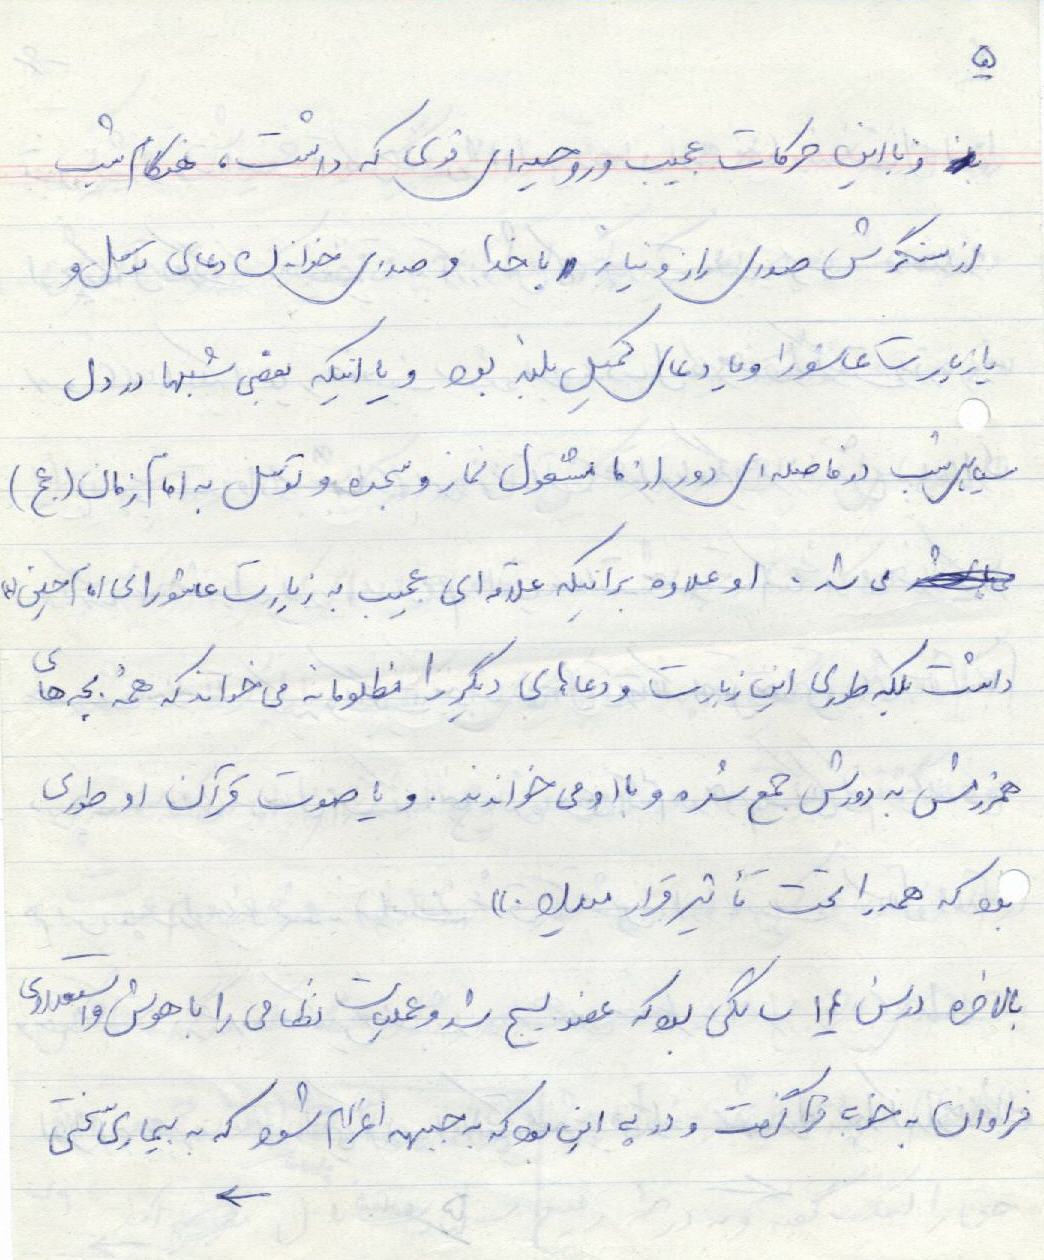 ۵
و با این حرکات عجیب و روحیه‌ای قوی که داشت، هنگام شب
از سنگرش صدای راز و نیاز با خدا و صدای خواندن دعای توسل و
یا زیارت عاشورا و یا دعای کمیل بلند بود و یا اینکه بعضی شبها در دل
سیاهی شب در فاصله‌ای دور از ما مشغول نماز و سجده و توسل به امام زمان (عج)
می شد. او علاوه براینکه علاقه‌ای عجیب به زیارت عاشورای امام حسین (ع)
داشت بلکه طوری این زیارت و دعاهای دیگر را مظلومانه می خواند که همهٔ بچه های
همرزمش به دورش جمع شده و با او می خواندند. و یا صوت قرآن او طوری
بود که همه را تحت تأثیر قرار میداد.))
بالاخره در سن سالگی بود که عضو بسیج شد و عملیات نظامی را با هوش و استعدادی
فراوان به خوبی فرا گرفت و در پی این بود که به جبهه اعزام شود که به بیماری سختی
←